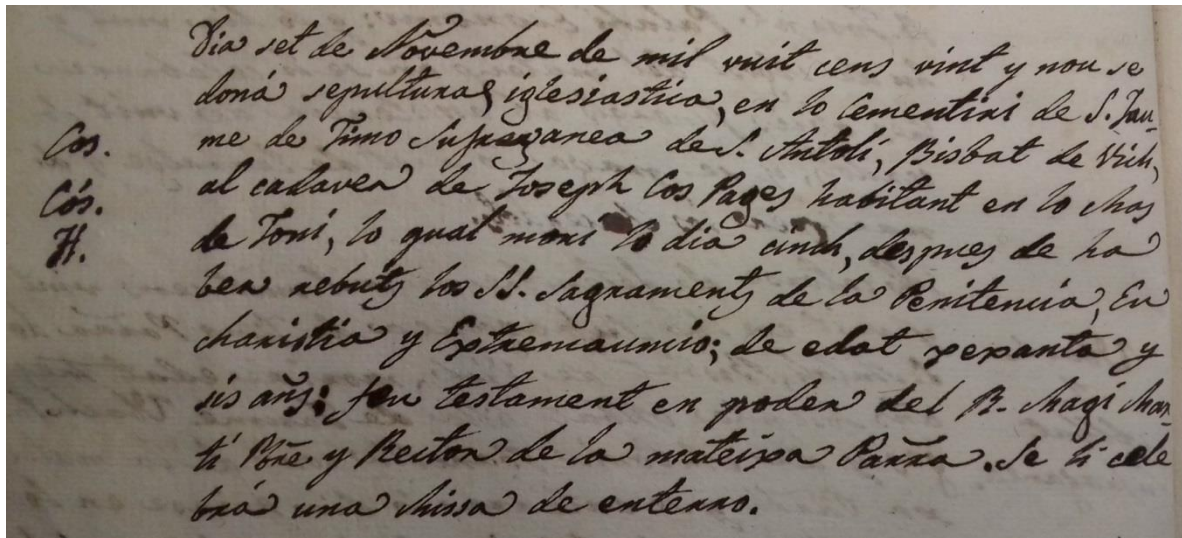 Dia set de Novembre de mil vuit cens vint y nou se
doná sepultura iglesiastica, en lo Cementiri de S. Jau-
Cos. me de Timo Sufraganea de S. Antolí, Bisbat de Vich,
Cós. al cadaver de Joseph Cos Pages habitant en lo Mas
H. de Toni, lo qual morí lo dia cinch, despues de ha
ber rebuts los SS. Sagraments de la Penitencia, Eu
charistia y Extremaunció; de edat xexanta y
sis añs: feu testament en poder del R. Magi Mar-
tí Pbre y Rector de la mateixa Parra. Se li cele
brá una Missa de enterro.